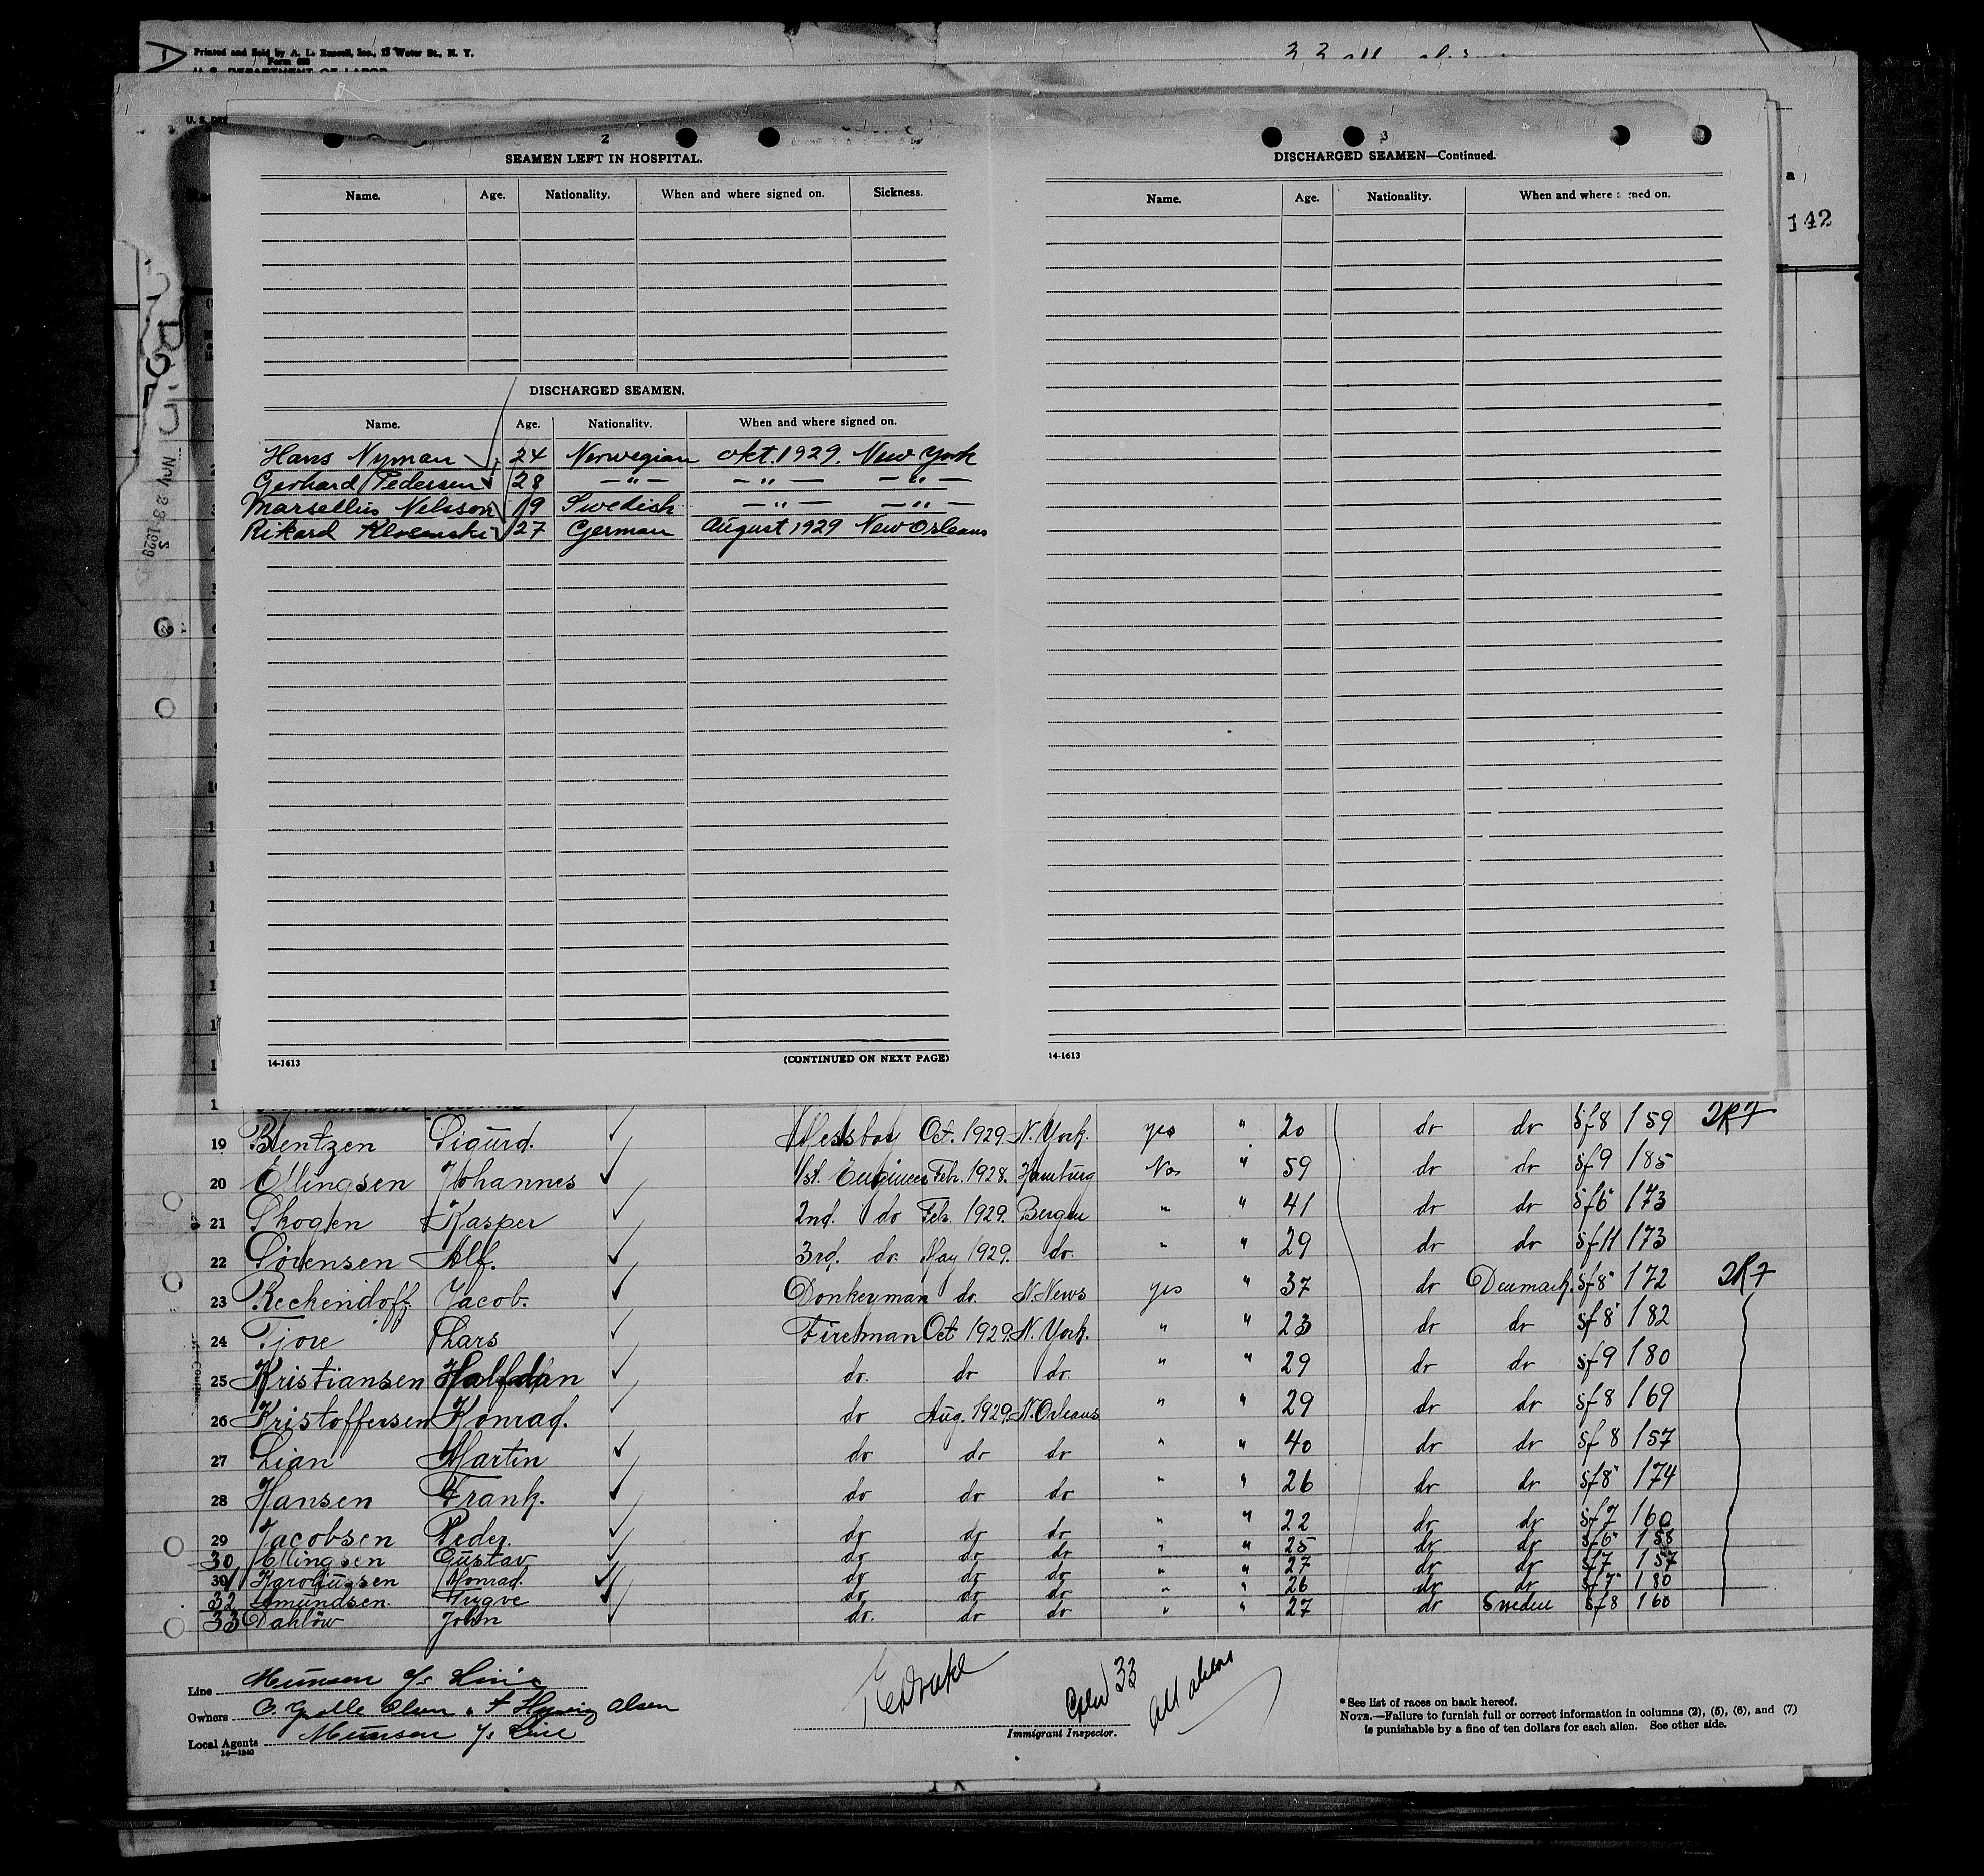 D
Printed and Sold by A. L. Russell, Inc., 15 Water St., N. Y.
U. S. DEPARTMENT OF LABOR
142
2
SEAMEN LEFT IN HOSPITAL.
Name. Age. Nationality. When and where signed on. Sickness.
DISCHARGED SEAMEN.
Name. Age. Nationality. When and where signed on.
Hans Nyman 24 Norwegian okt. 1929. New York
Gerhard Pedersen 28 — " — — " — — " —
Marsellius Nelsson 19 Swedish — " — — " —
Rikard 27 German August 1929 New Orleans
14-1613
(CONTINUED ON NEXT PAGE)
3
DISCHARGED SEAMEN—Continued.
Name. Age. Nationality. When and where signed on.
14-1613
19 Bentzen Sigurd. Messboy Oct. 1929. N. York. yes " 20 do do 5f8 159
20 Ellingsen Johannes 1st. Engineer Febr. 1928. Hamburg No " 59 do do 5f9 185
21 Skogen Kasper 2nd. do Feb. 1929. Bergen " " 41 do do 5f6 173
22 Sørensen Alf. 3rd. do. May 1929. do. " " 29 do do 5f11 173
23 Reckendoff Jacob. Donkeyman do. N. News yes " 37 do Denmark. 5f8 172
24 Tjore Lars Fireman Oct 1929. N. York. " " 23 do do 5f8 182
25 Kristiansen Halfdan do. do do. " " 29 do do 5f9 180
26 Kristoffersen Konrad. do Aug. 1929. N. Orleans " " 29 do do 5f8 169
27 Lian Martin do do do " " 40 do do 5f8 157
28 Hansen Frank. do do do " " 26 do do 5f8 174
29 Jacobsen Peder. do do do " " 22 do do 5f7 160
30 Ellingsen Gustav do do do " " 25 do do 5f6 158
31 Karoliussen Monrad. do do do " " 27 do do 5f7 157
32 Amundsen. Trygve do do do " " 26 do do 5f7 180
33 Dahlöw John do. do do " " 27 do Sweden 5f8 160
Line Munson S/s Line
Owners Olsen
Local Agents Munson S/s Line
14—1240
Crew 33
All aliens
Immigrant Inspector.
*See list of races on back hereof.
NOTE.—Failure to furnish full or correct information in columns (2), (5), (6), and (7)
is punishable by a fine of ten dollars for each alien. See other side.